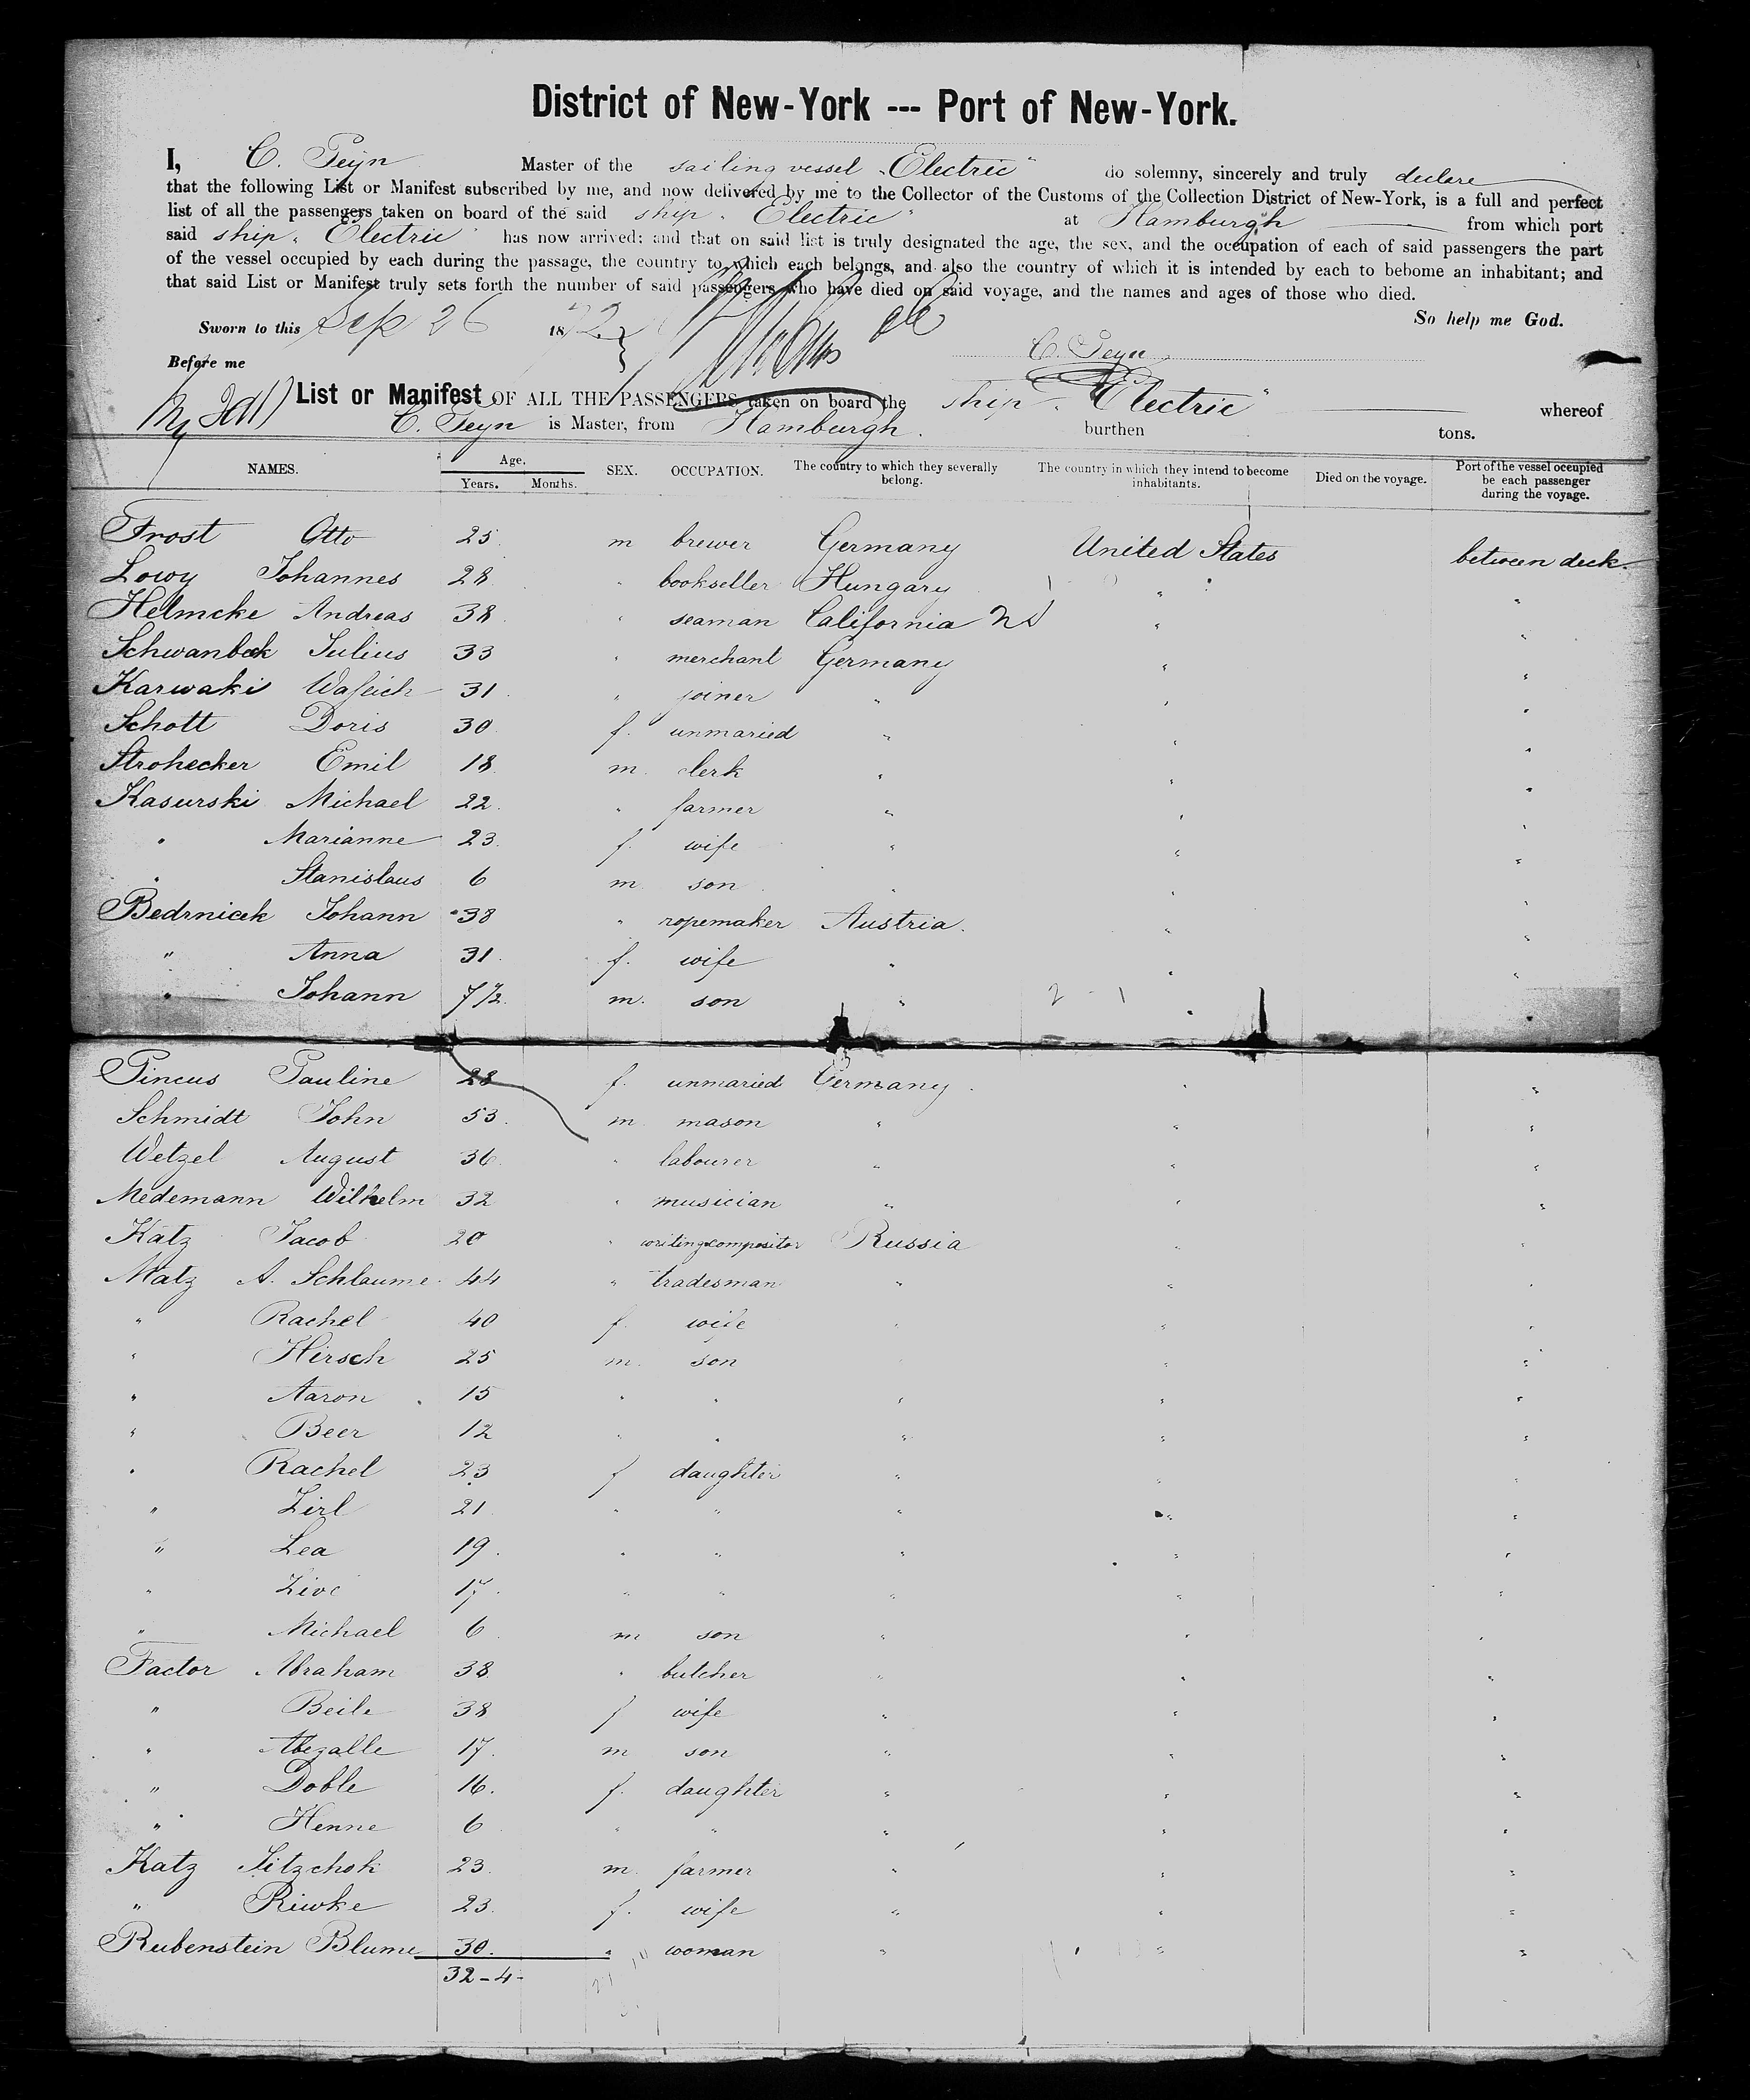 District of New-York --- Port of New-York.
I, C. Peyn Master of the sailing vessel „Electric" do solemny, sincerely and truly declare
that the following List or Manifest subscribed by me, and now delivered by me to the Collector of the Customs of the Collection District of New-York, is a full and perfect
list of all the passengers taken on board of the said ship „Electric" at Hamburgh from which port
said ship „Electric" has now arrived; and that on said list is truly designated the age, the sex, and the occupation of each of said passengers the part
of the vessel occupied by each during the passage, the country to which each belongs, and also the country of which it is intended by each to bebome an inhabitant; and
that said List or Manifest truly sets forth the number of said passengers who have died on said voyage, and the names and ages of those who died.
Sworn to this Sep 26 1872 So help me God.
Before me C. Peyn
List or Manifest OF ALL THE PASSENGERS taken on board the ship „Electric" whereof
C. Peyn is Master, from Hamburgh. burthen tons.
NAMES. Age. Years. Months. SEX. OCCUPATION. The country to which they severally belong. The country in which they intend to become inhabitants. Died on the voyage. Port of the vessel occupied be each passenger during the voyage.
Frost Otto 25 m brewer Germany United States between deck.
Lowy Johannes 28 " bookseller Hungary " "
Helmcke Andreas 38 " seaman California " "
Schwanbeck Julius 33 " merchant Germany " "
Karwaki 31 " joiner " " "
Schott Doris 30 f. unmaried " " "
Strohecker Emil 18 m. clerk " " "
Kasurski Michael 22 " farmer " " "
" Marianne 23 f. wife " " "
" Stanislaus 6 m son " " "
Bedrnicek Johann 38 " ropemaker Austria. " "
" Anna 31 f. wife " " "
" Johann 7 1/2 m. son " " "
Pincus Pauline 28 f. unmaried Germany. " "
Schmidt John 53 m mason " " "
Wetzel August 36 " labourer " " "
Medemann Wilhelm 32 " musician " " "
Katz Jacob 20 " writingcompositor Russia " "
Matz A. Schlaume 44 " tradesman " " "
" Rachel 40 f. wife " " "
" Hirsch 25 m. son " " "
" Aaron 15 " " " " "
" Beer 12 " " " " "
" Rachel 23 f daughter " " "
" Zirl 21 " " " " "
" Lea 19 " " " " "
" Zive 17 " " " " "
" Michael 6 m son " " "
Factor Abraham 38 " butcher " " "
" Beile 38 f wife " " "
" Abezalle 17 m son " " "
" Doble 16 f. daughter " " "
" Henne 6 " " " " "
Katz Sitzchok 23 m. farmer " " "
" Riwke 23 f. wife " " "
Rubenstein Blume 30 " woman " " "
32-4-